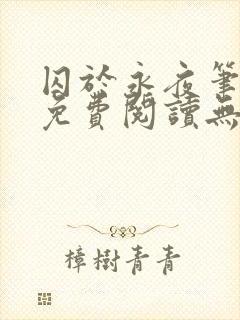 囚於永夜筆
免費閱讀無
樟樹青青